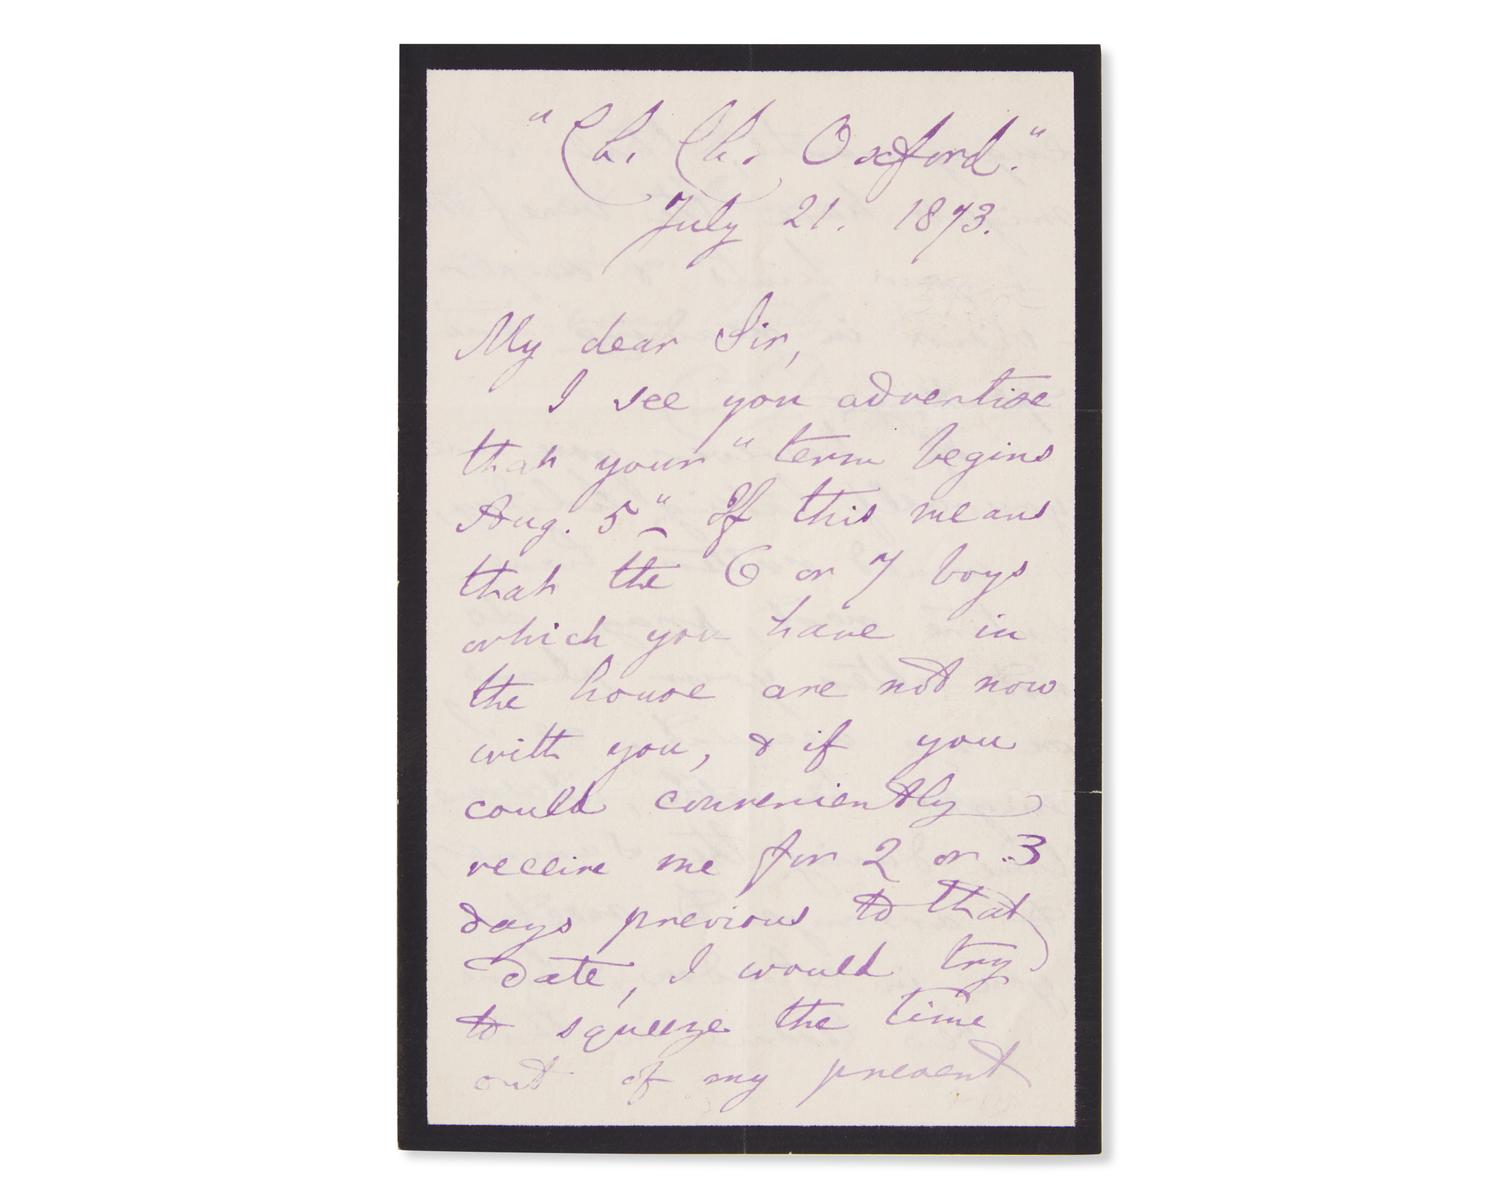 "Ch. Ch. Oxford."
July 21. 1873.
My dear Sir,
I see you advertise
that your "term begins
Aug. 5" If this means
that the 6 or 7 boys
which you have in
the house are not now
with you, & if you
could conveniently
receive me for 2 or 3
days previous to that
date, I would try
to squeeze the time
out of my present